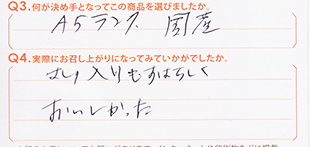 Q3.何が決め手となってこの商品を選びましたか。
A5ランク 国産
Q4.実際にお召し上がりになってみていかがでしたか。
さし入りもすばらしく
おいしかった